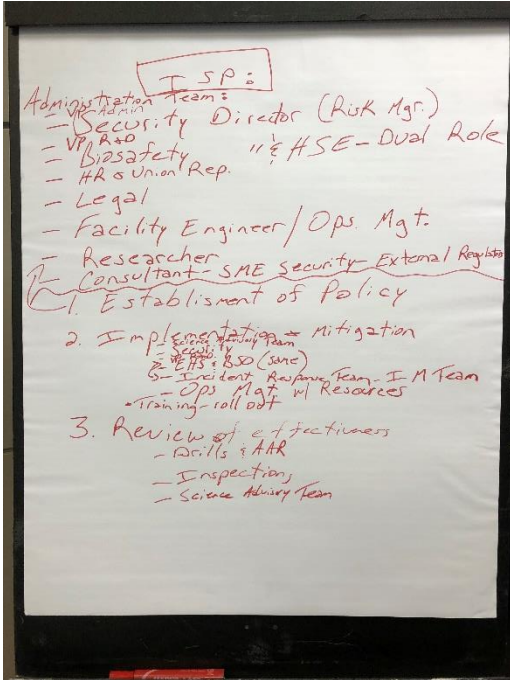 ISP:
Administration Team:
- VP-Admin
- Security Director (Risk Mgr.)
- VP R&D
- Biosafety " & HSE - Dual Role
- HR & Union Rep.
- Legal
- Facility Engineer/Ops. Mgt.
- Researcher
- Consultant - SME Security - External Regulation
1. Establisment of Policy
2. Implementation = Mitigation
- Science Advisory Team
- Security
- EHS & BSO (same)
- Incident Response Team - IM Team
- Ops Mgt w/ Resources
- Training - roll out
3. Review of effectiveness
- Drills & AAR
- Inspections
- Science Advisory Team